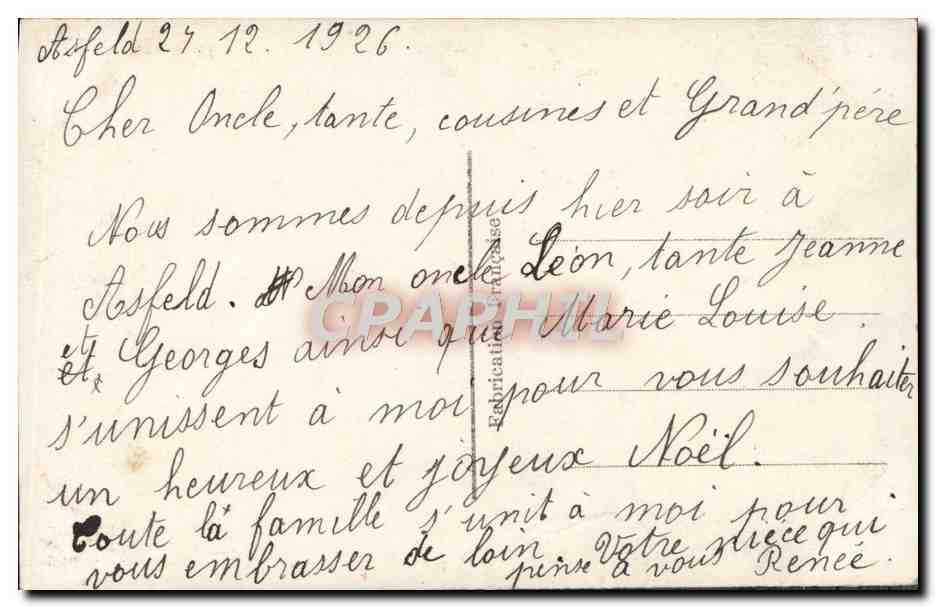 Asfeld 24.12.1926.
Cher Oncle, tante, cousines et Grand'père
Nous sommes depuis hier soir à
Asfeld. Mon oncle Léon, tante Jeanne
et Georges ainsi que Marie Louise
s'unissent à moi pour vous souhaiter
un heureux et joyeux Noël.
toute la famille s'unit à moi pour
vous embrasser de loin. Votre nièce qui
pense à vous Renée.
Fabrication Française
CPAPHIL